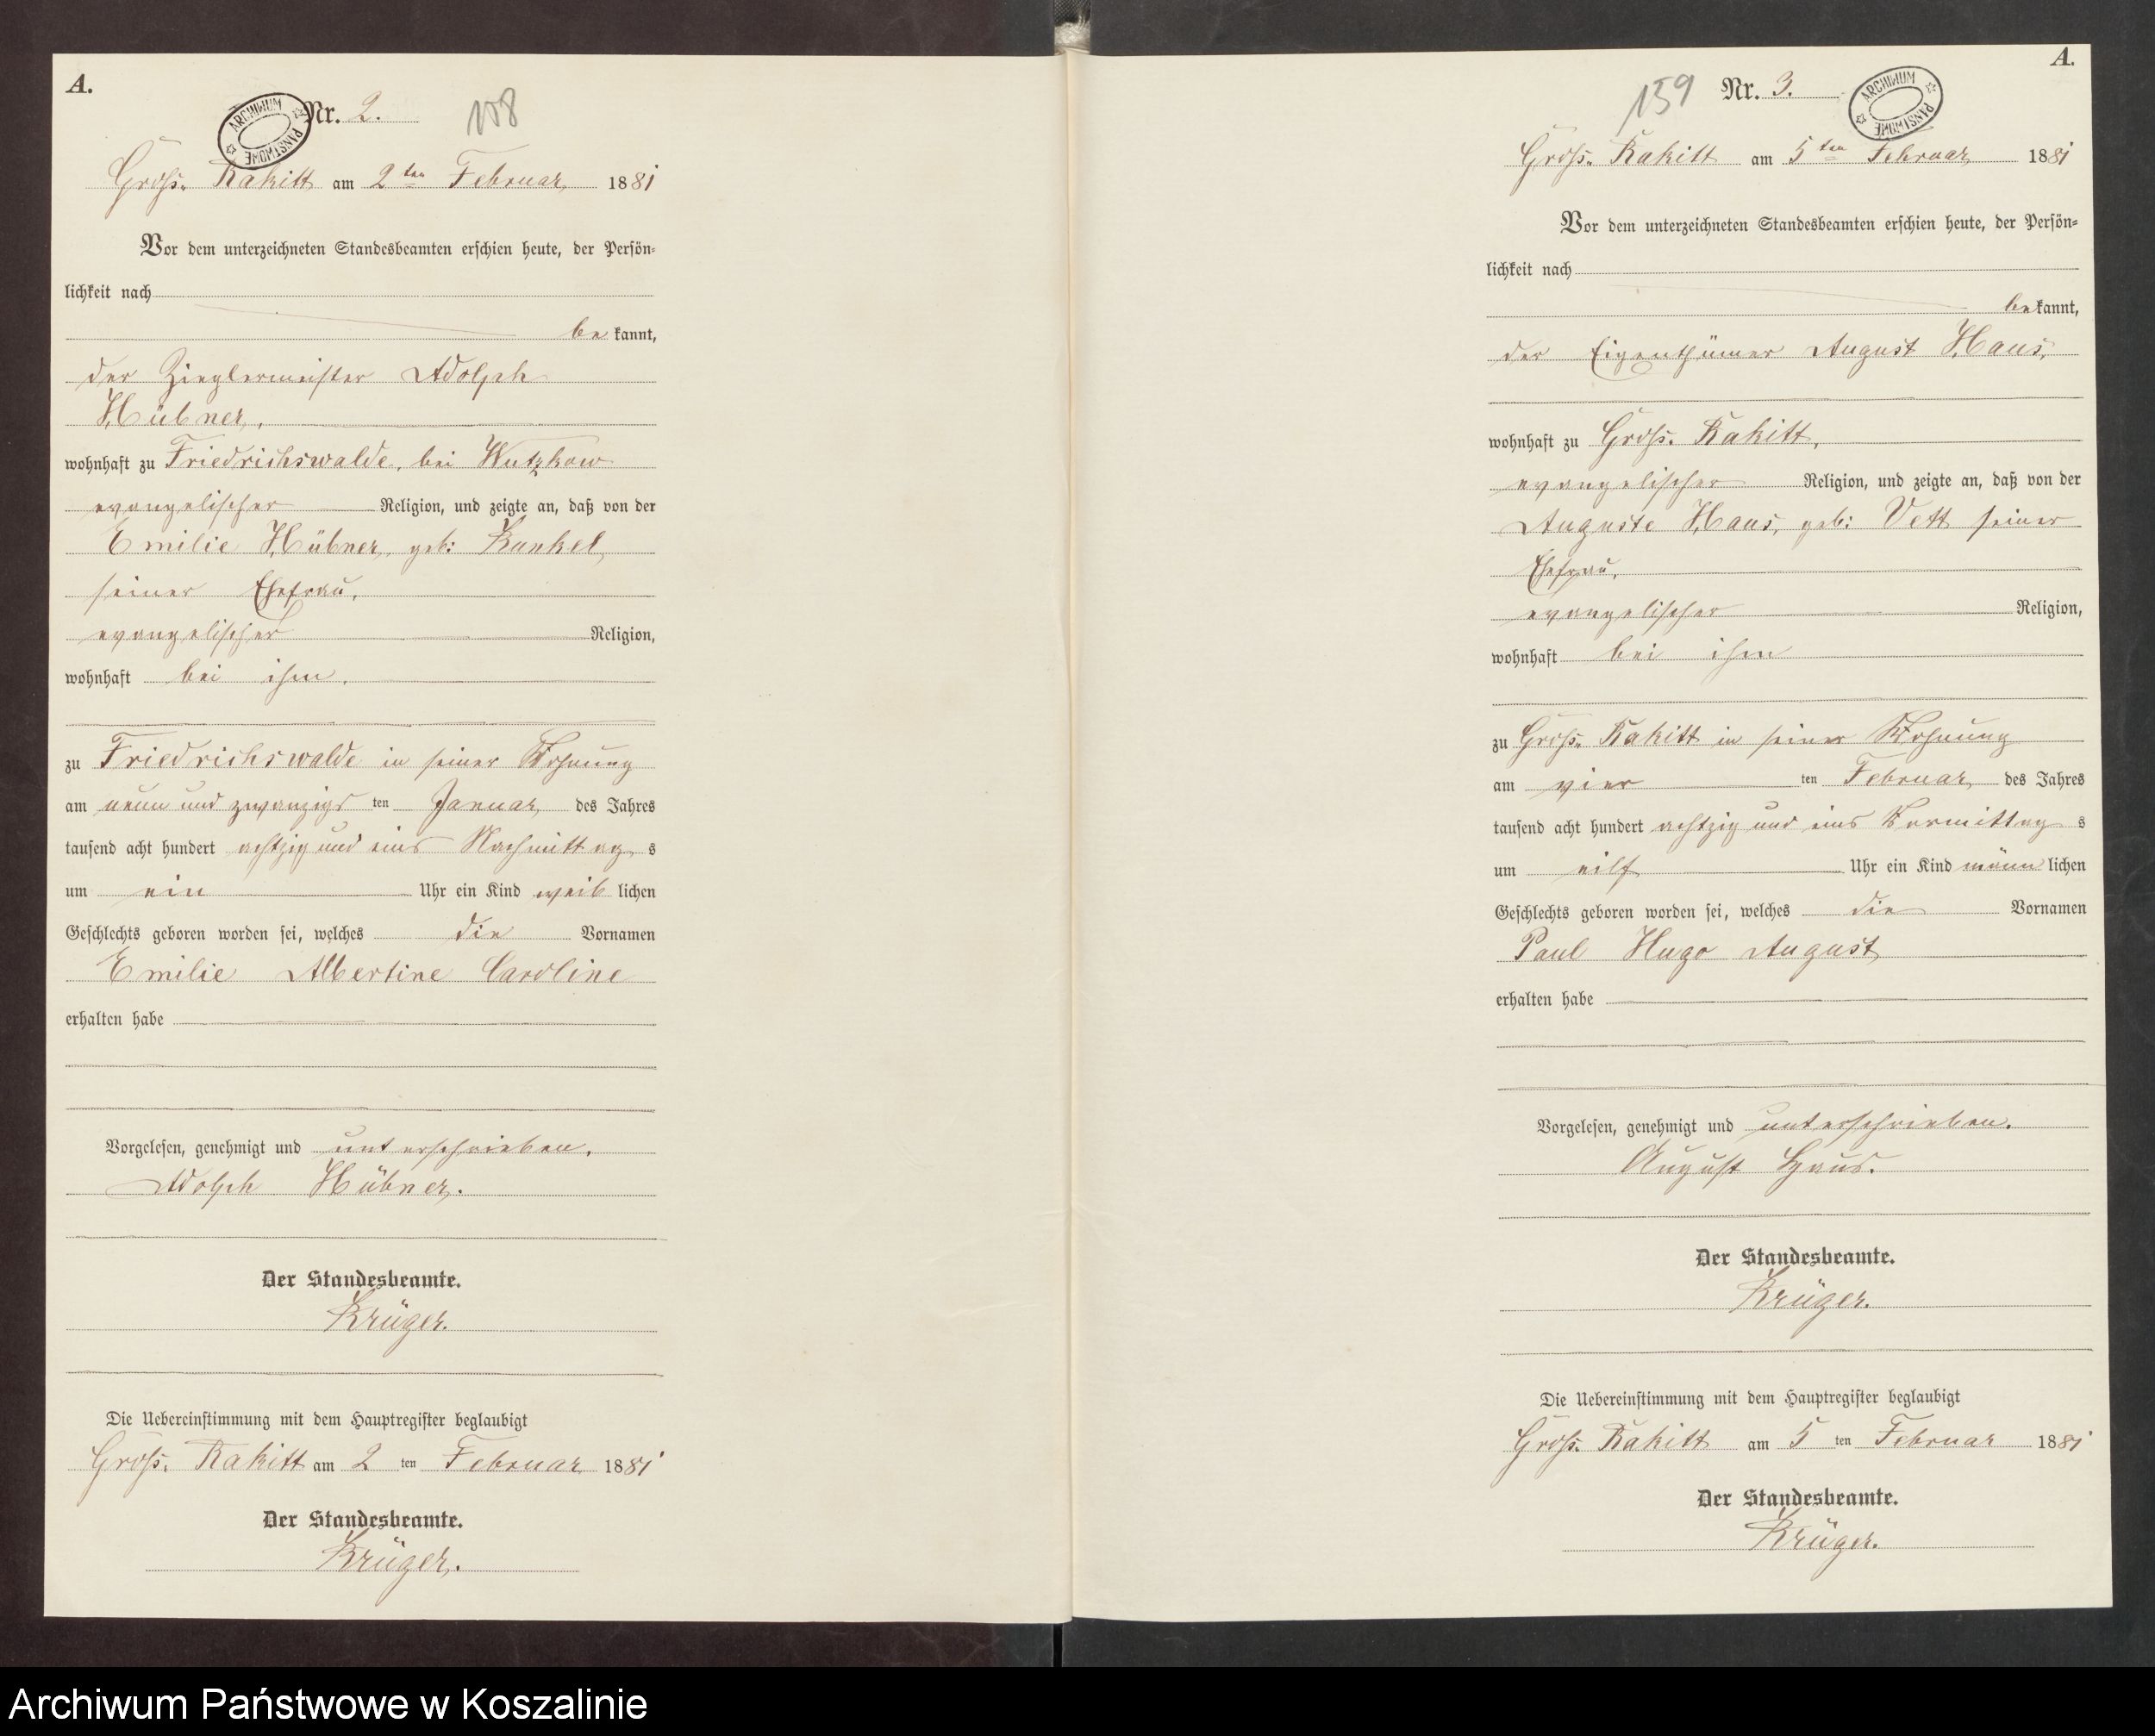 A.
Nr. 2.
158
ARCHIWUM PAŃSTWOWE
Groß. Rakitt am 2ten Februar 1881
Vor dem unterzeichneten Standesbeamten erschien heute, der Persön-
lichkeit nach
be kannt,
der Zieglermeister Adolph
Hübner,
wohnhaft zu Friedrichswalde, bei Wutzkow
evangelischer Religion, und zeigte an, daß von der
Emilie Hübner, geb: Kunkel,
seiner Ehefrau,
evangelischer Religion,
wohnhaft bei ihm,
zu Friedrichswalde in seiner Wohnung
am neun und zwanzigs ten Januar, des Jahres
tausend acht hundert achtzig und eins Nachmittag s
um ein Uhr ein Kind weib lichen
Geschlechts geboren worden sei, welches die Vornamen
Emilie Albertine Caroline
erhalten habe
Vorgelesen, genehmigt und unterschrieben.
Adolph Hübner.
Der Standesbeamte.
Krüger.
Die Uebereinstimmung mit dem Hauptregister beglaubigt
Groß. Rakitt am 2 ten Februar 1881
Der Standesbeamte.
Krüger.
A.
159
Nr. 3.
ARCHIWUM PAŃSTWOWE
Groß. Rakitt am 5ten Februar 1881
Vor dem unterzeichneten Standesbeamten erschien heute, der Persön-
lichkeit nach
be kannt,
der Eigenthümer August Haus,
wohnhaft zu Groß. Rakitt,
evangelischer Religion, und zeigte an, daß von der
Auguste Haus, geb: Vett seiner
Ehefrau,
evangelischer Religion,
wohnhaft bei ihm
zu Groß. Rakitt in seiner Wohnung
am vier ten Februar, des Jahres
tausend acht hundert achtzig und eins Vormittag s
um eilf Uhr ein Kind männ lichen
Geschlechts geboren worden sei, welches die Vornamen
Paul Hugo August
erhalten habe
Vorgelesen, genehmigt und unterschrieben.
August Haus.
Der Standesbeamte.
Krüger.
Die Uebereinstimmung mit dem Hauptregister beglaubigt
Groß. Rakitt am 5 ten Februar 1881
Der Standesbeamte.
Krüger.
Archiwum Państwowe w Koszalinie